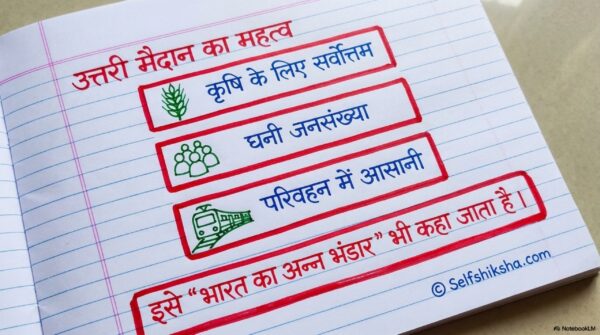 उत्तरी मैदान का महत्व
कृषि के लिए सर्वोत्तम
घनी जनसंख्या
परिवहन में आसानी
इसे “भारत का अन्न भंडार” भी कहा जाता है।
© Selfshiksha.com
NotebookLM